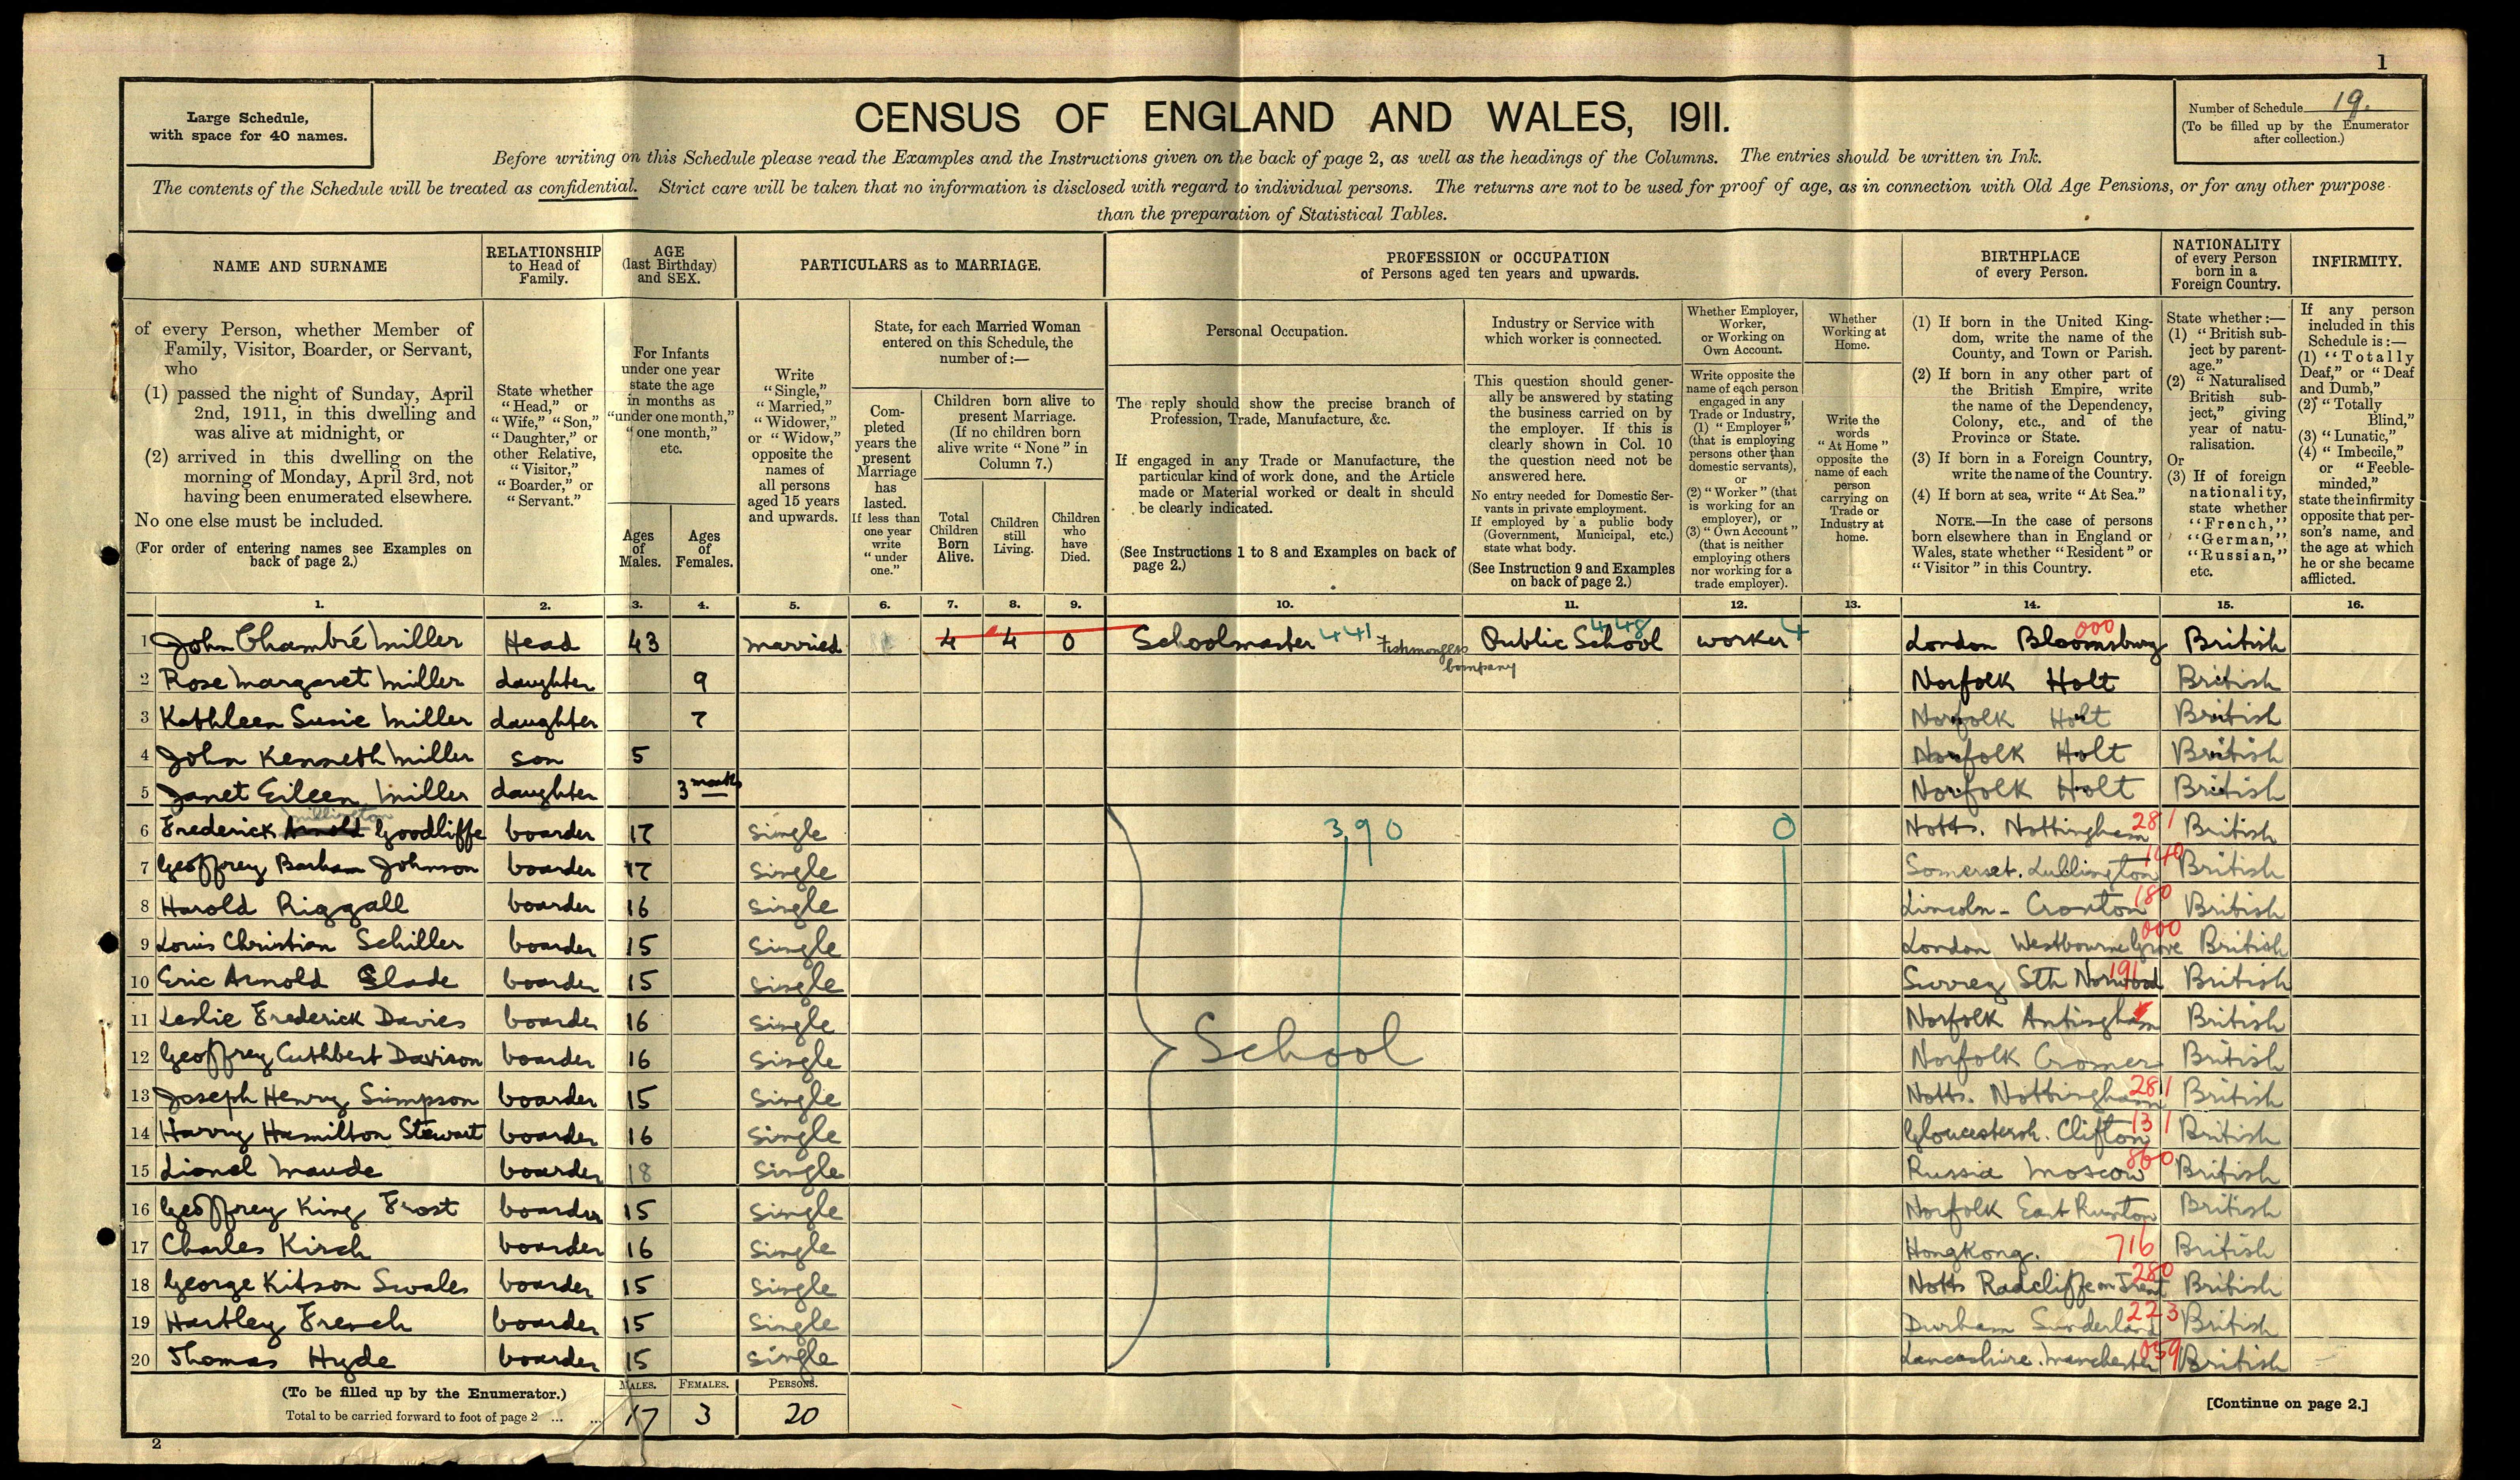 1
Large Schedule,
with space for 40 names.
CENSUS OF ENGLAND AND WALES, 1911.
Number of Schedule 19.
(To be filled up by the Enumerator
after collection.)
Before writing on this Schedule please read the Examples and the Instructions given on the back of page 2, as well as the headings of the Columns. The entries should be written in Ink.
The contents of the Schedule will be treated as confidential. Strict care will be taken that no information is disclosed with regard to individual persons. The returns are not to be used for proof of age, as in connection with Old Age Pensions, or for any other purpose
than the preparation of Statistical Tables.
NAME AND SURNAME
of every Person, whether Member of
Family, Visitor, Boarder, or Servant,
who
(1) passed the night of Sunday, April
2nd, 1911, in this dwelling and
was alive at midnight, or
(2) arrived in this dwelling on the
morning of Monday, April 3rd, not
having been enumerated elsewhere.
No one else must be included.
(For order of entering names see Examples on
back of page 2.)
RELATIONSHIP
to Head of
Family.
State whether
"Head," or
"Wife," "Son,"
"Daughter," or
other Relative,
"Visitor,"
"Boarder," or
"Servant."
AGE
(last Birthday)
and SEX.
For Infants
under one year
state the age
in months as
"under one month,"
"one month,"
etc.
Ages
of
Males.
Ages
of
Females.
PARTICULARS as to MARRIAGE.
Write
"Single,"
"Married,"
"Widower,"
or "Widow,"
opposite the
names of
all persons
aged 15 years
and upwards.
State, for each Married Woman
entered on this Schedule, the
number of:—
Com-
pleted
years the
present
Marriage
has
lasted.
If less than
one year
write
"under
one."
Children born alive to
present Marriage.
(If no children born
alive write "None" in
Column 7.)
Total
Children
Born
Alive.
Children
still
Living.
Children
who
have
Died.
PROFESSION or OCCUPATION
of Persons aged ten years and upwards.
Personal Occupation.
The reply should show the precise branch of
Profession, Trade, Manufacture, &c.
If engaged in any Trade or Manufacture, the
particular kind of work done, and the Article
made or Material worked or dealt in should
be clearly indicated.
(See Instructions 1 to 8 and Examples on back of
page 2.)
Industry or Service with
which worker is connected.
This question should gener-
ally be answered by stating
the business carried on by
the employer. If this is
clearly shown in Col. 10
the question need not be
answered here.
No entry needed for Domestic Ser-
vants in private employment.
If employed by a public body
(Government, Municipal, etc.)
state what body.
(See Instruction 9 and Examples
on back of page 2.)
Whether Employer,
Worker,
or Working on
Own Account.
Write opposite the
name of each person
engaged in any
Trade or Industry,
(1) "Employer"
(that is employing
persons other than
domestic servants),
or
(2) "Worker" (that
is working for an
employer), or
(3) "Own Account"
(that is neither
employing others
nor working for a
trade employer).
Whether
Working at
Home.
Write the
words
"At Home"
opposite the
name of each
person
carrying on
Trade or
Industry at
home.
BIRTHPLACE
of every Person.
(1) If born in the United King-
dom, write the name of the
County, and Town or Parish.
(2) If born in any other part of
the British Empire, write
the name of the Dependency,
Colony, etc., and of the
Province or State.
(3) If born in a Foreign Country,
write the name of the Country.
(4) If born at sea, write "At Sea."
NOTE.—In the case of persons
born elsewhere than in England or
Wales, state whether "Resident" or
"Visitor" in this Country.
NATIONALITY
of every Person
born in a
Foreign Country.
State whether :—
(1) "British sub-
ject by parent-
age."
(2) "Naturalised
British sub-
ject," giving
year of natu-
ralisation.
Or
(3) If of foreign
nationality,
state whether
"French,"
"German,"
"Russian,"
etc.
INFIRMITY.
If any person
included in this
Schedule is:—
(1) "Totally
Deaf," or "Deaf
and Dumb,"
(2) "Totally
Blind,"
(3) "Lunatic,"
(4) "Imbecile,"
or "Feeble-
minded,"
state the infirmity
opposite that per-
son's name, and
the age at which
he or she became
afflicted.
1. 2. 3. 4. 5. 6. 7. 8. 9. 10. 11. 12. 13. 14. 15. 16.
1 John Chambré Miller Head 43 married 4 4 0 Schoolmaster 441 Fishmongers Company Public School 448 worker 4 London Bloomsbury 000 British
2 Rose Margaret Miller daughter 9 Norfolk Holt British
3 Kathleen Susie Miller daughter 7 Norfolk Holt British
4 John Kenneth Miller son 5 Norfolk Holt British
5 Janet Eileen Miller daughter 3 months Norfolk Holt British
6 Frederick Arnold Millington Goodliffe boarder 17 single 390 0 Notts. Nottingham 281 British
7 Geoffrey Barham Johnson boarder 17 single Somerset. Lullington 140 British
8 Harold Riggall boarder 16 single Lincoln - Croxton 180 British
9 Louis Christian Schiller boarder 15 single London Westbourne Grove 000 British
10 Eric Arnold Slade boarder 15 single Surrey Sth Norwood 191 British
11 Leslie Frederick Davies boarder 16 single Norfolk Antingham British
12 Geoffrey Cuthbert Davison boarder 16 single School Norfolk Cromer British
13 Joseph Henry Simpson boarder 15 single Notts. Nottingham 281 British
14 Harry Hamilton Stewart boarder 16 single Gloucestersh. Clifton 131 British
15 Lionel Maude boarder 18 single Russia Moscow 860 British
16 Geoffrey King Frost boarder 15 single Norfolk East Runton British
17 Charles Kirch boarder 16 single HongKong. 716 British
18 George Kitson Swales boarder 15 single Notts Radcliffe on Trent 280 British
19 Hartley French boarder 15 single Durham Sunderland 223 British
20 Thomas Hyde boarder 15 single Lancashire. Manchester 059 British
(To be filled up by the Enumerator.)
Total to be carried forward to foot of page 2 ... ...
MALES. FEMALES. PERSONS.
17 3 20
[Continue on page 2.]
2